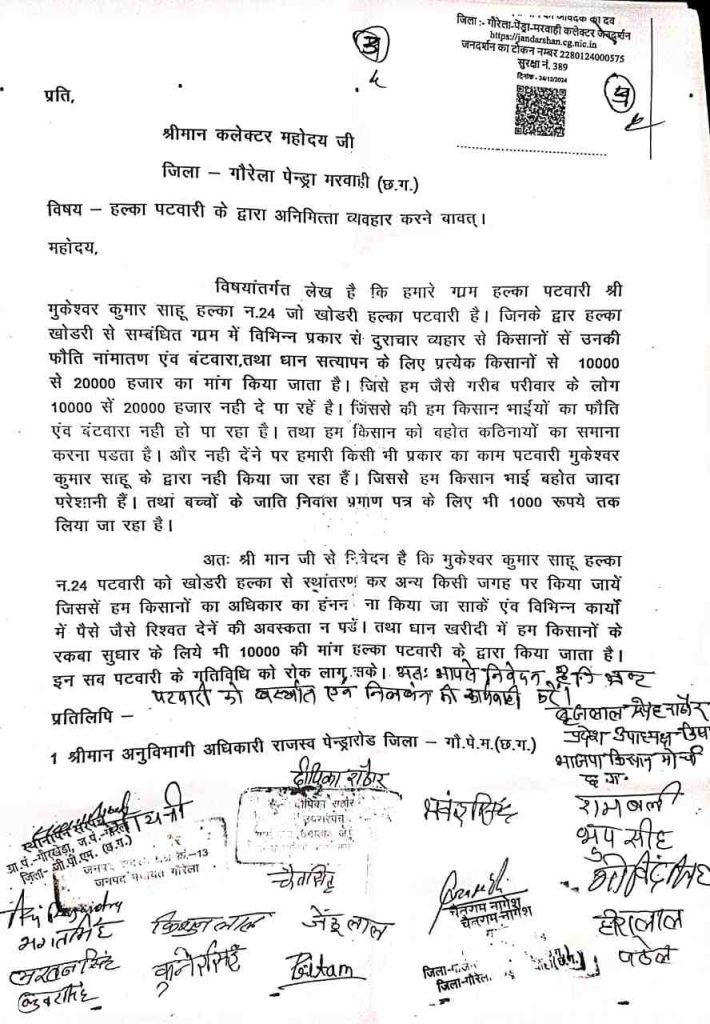 जिला :- गौरेला-पेंड्रा-मरवाही कलेक्टर जनदर्शन
https://jandarshan.cg.nic.in
जनदर्शन का टोकन नम्बर 2280124000575
सुरक्षा नं. 389
दिनांक - 24/12/2024
प्रति,
श्रीमान कलेक्टर महोदय जी
जिला – गौरेला पेन्ड्रा मरवाही (छ.ग.)
विषय – हल्का पटवारी के द्वारा अनिमित्ता व्यवहार करने बावत्।
महोदय,
विषयांतर्गत लेख है कि हमारे गा्रम हल्का पटवारी श्री
मुकेश्वर कुमार साहू हल्का न.24 जो खोडरी हल्का पटवारी है। जिनके द्वार हल्का
खोडरी से सम्बंधित गा्रम में विभिन्न प्रकार से दुराचार व्यहार से किसानों सें उनकी
फौति नांमातण एंव बंटवारा,तथा धान सत्यापन के लिए प्रत्येक किसानों से 10000
से 20000 हजार का मांग किया जाता है। जिसे हम जैसे गरीब परीवार के लोग
10000 सें 20000 हजार नही दे पा रहें है। जिंससे की हम किसान भाईयों का फौति
एंव बंटवारा नही हो पा रहा है। तथा हम किसान को बहोत कठिनायों का समाना
करना पडता है। और नही देंने पर हमारी किसी भी प्रकार का काम पटवारी मुकेश्वर
कुमार साहू के द्वारा नही किया जा रहा हैं। जिससे हम किसान भाई बहोत जादा
परेशानी हैं। तथां बच्चों के जाति निवास प्रमाण पत्र के लिए भी 1000 रूपये तक
लिया जा रहा है।
अतः श्री मान जी से निवेदन है कि मुकेश्वर कुमार साहू हल्का
न.24 पटवारी को खोडरी हल्का से स्थांतरण कर अन्य किसी जगह पर किया जायें
जिससें हम किसानों का अधिकार का हंनन ना किया जा साकें एंव विभिन्न कार्यो
में पैसे जैसे रिश्वत देनें की अवस्कता न पडें। तथा धान खरीदी में हम किसानों के
रकबा सुधार के लिये भी 10000 की मांग हल्का पटवारी के द्वारा किया जाता है।
इन सब पटवारी के गतिविधि को रोक लागू सके। अतः आपसे निवेदन है कि भ्रष्ट
पटवारी को बर्खास्त एवं निलंबन की कार्यवाही करें।
प्रतिलिपि –
1 श्रीमान अनुविभागी अधिकारी राजस्व पेन्ड्रारोड जिला – गौ.पे.म.(छ.ग.)
भाजपा किसान मोर्चा
छ.ग.
दीपिका राठौर
दीपिका राठौर
उपसरपंच
भवंरसिंह
रामबली
भूपसिंह
गोविंदसिंह
ग्रा.पं.-गोरखेड़ा, ज.पं.-गौरेला
जिला- जी.पी.एम. (छ.ग.)
जनपद पंचायत गौरेला
चैतसिंह
चैतराम नागेश
भगतसिंह
किशुन लाल
जेठूलाल
हीरालाल
पटेल
लखनसिंह
कुबेरसिंह
Pritam
जिला-गौरेला